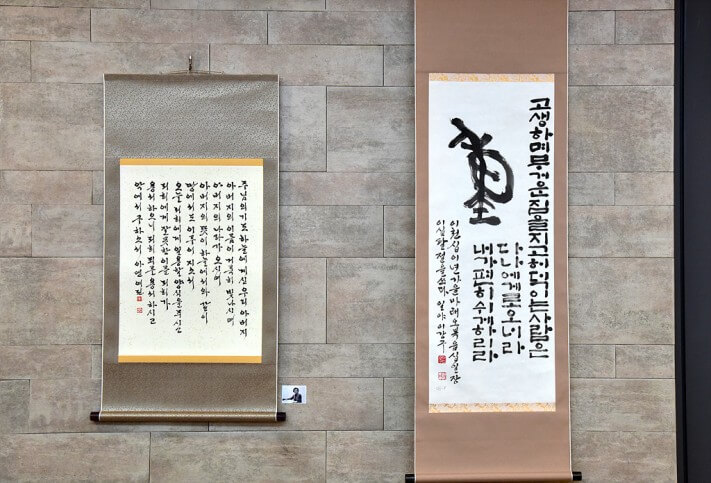 주님의기도 하늘에 계신 우리 아버지
아버지의 이름이 거룩히 빛나시며
아버지의 나라가 오시며
아버지의 뜻이 하늘에서와 같이
땅에서도 이루어지소서
오늘 저희에게 일용할 양식을 주시고
저희에게 잘못한 이를 저희가
용서하오니 저희 죄를 용서하시고
악에서 구하소서 아멘
고생하며 무거운 짐을 지고 허덕이는 사람은
다 나에게로 오너라
내가 편히 쉬게 하리라
이천십이년 가을 마태오복음 십일장
이십팔절을 쓰다